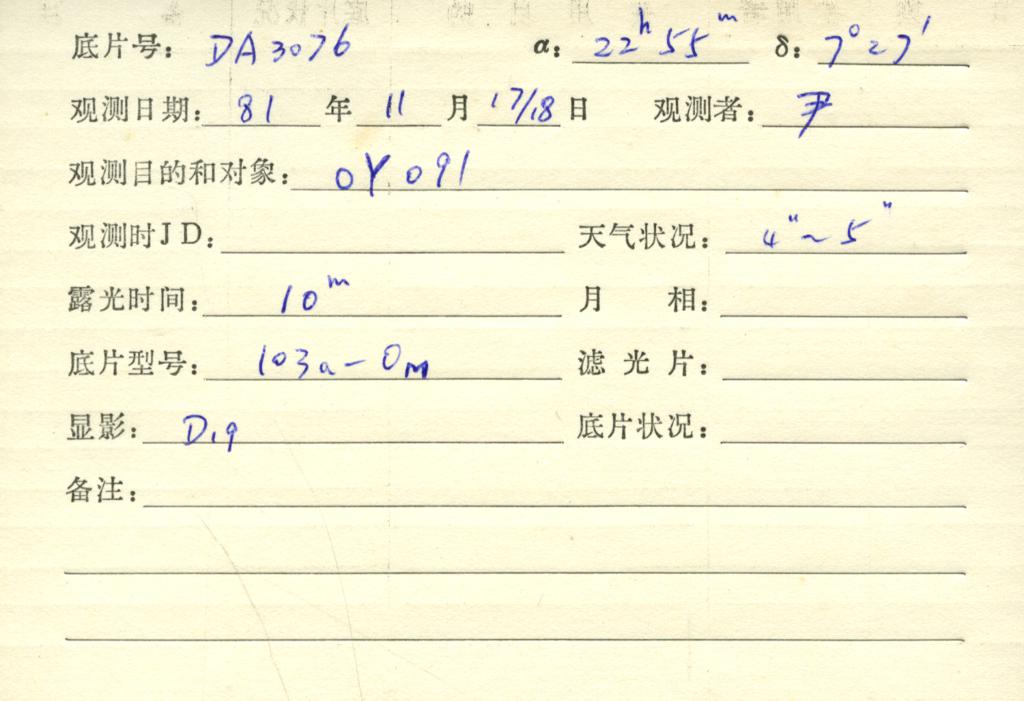 底片号: DA3076 α: 22h 55m δ: 7°27′
观测日期: 81 年 11 月 17/18 日 观测者: 尹
观测目的和对象: OY 091
观测时JD: 天气状况: 4″~5″
露光时间: 10m 月 相:
底片型号: 103a-Om 滤 光 片:
显影: D19 底片状况:
备注: